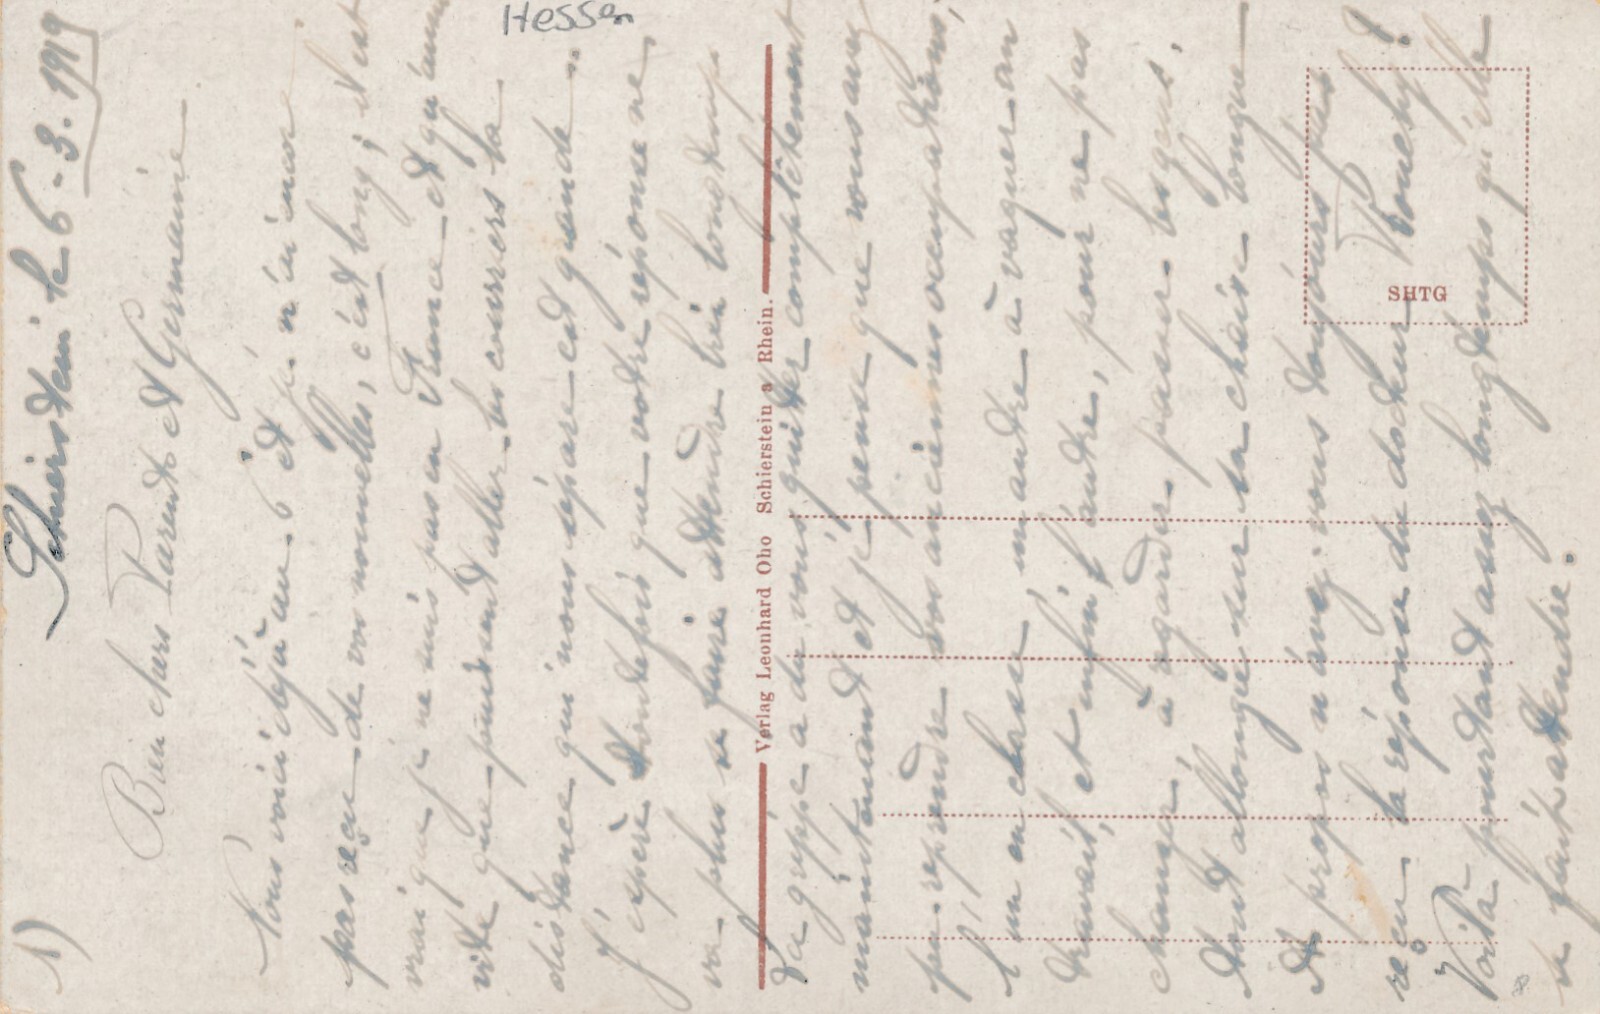 1)
Schierstein le 6-3.1919
Bien chers Parents et Germaine
Nous voici déjà au 6 et je n'ai encor
pas reçu de vos nouvelles, c'est long; il est
vrai que je ne suis pas en France et qu'aussi
vite que puissent aller les courriers la
distance qui nous sépare est grande.
J'espère toutefois que votre réponse ne
va plus se faire attendre bien longtemps
La grippe a du vous quitter complètement
maintenant et je pense que vous avez
pu reprendre vos anciennes occupations,
l'un en classe, un autre à vaquer au
travail, et enfin l'autre, pour ne pas
changer, à regarder passer les gens,
tout allongé sur sa chaise longue
A propos n'avez-vous toujours pas
reçu la réponse du docteur Pouchy?
Voilà pourtant assez longtemps qu'elle
se fait attendre.
Hessen
Verlag Leonhard Oho Schierstein a Rhein.
SHTG